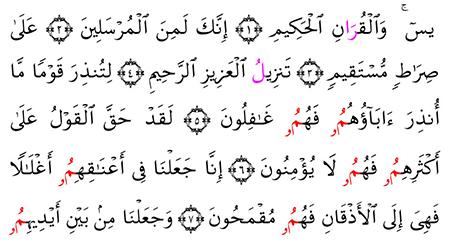 يسٓ ۚ وَٱلْقُرَانِ ٱلْحَكِيمِ ﴿١﴾ إِنَّكَ لَمِنَ ٱلْمُرْسَلِينَ ﴿٢﴾ عَلَىٰ
صِرَٰطٍ مُّسْتَقِيمٍ ﴿٣﴾ تَنزِيلُ ٱلْعَزِيزِ ٱلرَّحِيمِ ﴿٤﴾ لِتُنذِرَ قَوْمًا مَّا
أُنذِرَ ءَابَآؤُهُمُۥ فَهُمُۥ غَٰفِلُونَ ﴿٥﴾ لَقَدْ حَقَّ ٱلْقَوْلُ عَلَىٰ
أَكْثَرِهِمُۥ فَهُمُۥ لَا يُؤْمِنُونَ ﴿٦﴾ إِنَّا جَعَلْنَا فِى أَعْنَٰقِهِمُۥ أَغْلَٰلًا
فَهِىَ إِلَى ٱلْأَذْقَانِ فَهُمُۥ مُقْمَحُونَ ﴿٧﴾ وَجَعَلْنَا مِنۢ بَيْنِ أَيْدِيهِمُۥ